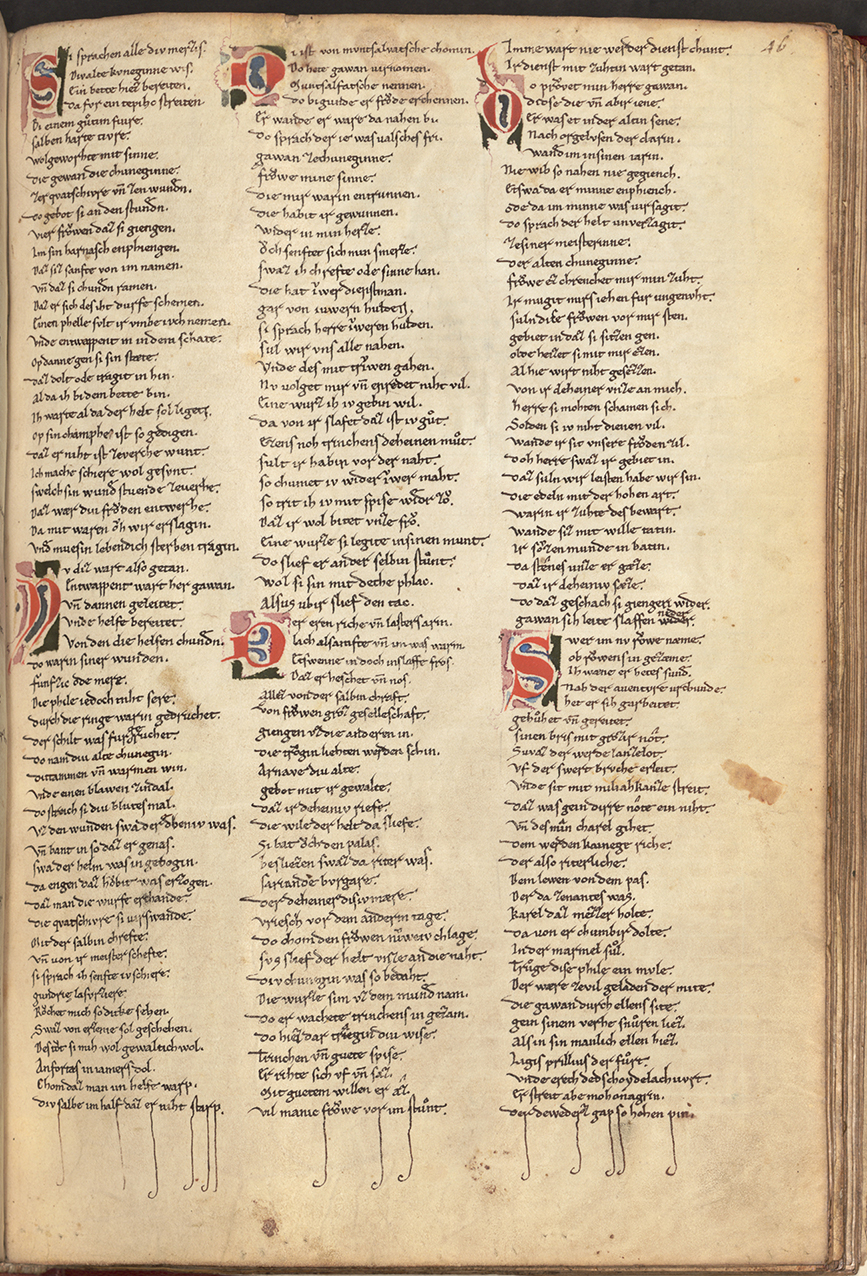 46
Si sprachen alle div mer ist.
Div alte kuneginne wis.
Ein bette hiez bereiten.
Da for ein tepiho spreiten
Bi einem gůtim fiure.
salben harte tiure.
wol geworhte mit sinne.
die gewan die chuneginne.
zer qvatschivre vñ zen wundn.
do gebot si an den stundn.
vier frŏwen daz si giengen.
Im sin harnasch enphiengen.
Daz siz sanfte von im namen.
vñ daz si chundn ramen.
Daz er sich des iht durfe schemen.
Einen phelle sult ir vmbe ivch nemen.
vnde entwappent in in dem schate.
op danne gen si sin state.
Daz dolt ode tragit in hin.
Al da ih bi dem bette bin.
Ih warte al da der helt sol ligen.
op sin champhez ist so gedigen.
daz er niht ist ze verhe wunt.
Ich mache schiere wol gesvnt.
swelch sin wund stuende ze verhe.
Daz wær div frŏden entwerhe.
Da mit waren ŏh wir erslagin.
vnd muesin lobendich sterben tragin.
Nv diz wart also getan.
Entwappent wart her gawan.
vñ dannen geleitet.
vnde helfe bereitet.
von den die helfen chundn.
do warin siner wunden.
funfzic ode mere.
Die phile iedoch niht sere.
durch die ringe warin gedruchet.
der schilt was fur geruchet.
Do nam div alte chunegin.
dictammen vñ warmen win.
vnde einen blawen zindal.
do streich si div blutes mal.
vz den wunden swa der dbeniv was.
vñ bant in so daz er genas.
swa der helm was in gebogin.
da engen daz hŏbit was erzogen.
daz man die wurfe erchande.
die qvatschivre si virswande.
Mit der salbin chrefte.
vñ von ir meisterschefte.
si sprach ih senfte iv schiere.
gundrie la svrziere.
Rŏchet mich so dicke sehen.
swaz von erzenie sol geschehen.
Des tŏt si mih wol gewaltich wol.
Anfortas in iamers dol.
Chom daz man im helfe warp.
div salbe im half daz er niht starp.
Si ist von mvntsalvatsche chomin.
Do hete gawan virnomen.
Mvntsalfatsche nennen.
do bigvnde er frŏde erchennen.
Er wande er ware da nahen bi.
Do sprach der ie was valsches fri.
gawan ze chuneginne.
frŏwe mine sinne.
die mir warin entrunnen.
die habit ir gewunnen.
wider in min herze.
ŏch senftet sich min smerze.
swaz ih chrefte ode sinne han.
die hat iwer dienstman.
gar von iuwern hulden.
si sprach herre iweren hulden.
sul wir vns alle nahen.
vnde des mit triwen gahen.
Nv volget mir vñ enredet niht vil.
Eine wurz ih iv gebin wil.
da von ir slafet daz ist iv gůt.
Ezens noh trinchens deheinen můt.
sult ir habin vor der naht.
so chumet iv wider iwer maht.
so trit ih iv mit spise widr zŏ.
Daz ir wol bitet vnze frŏ.
Eine wurze si legite in sinen munt.
do slief er an der selbin stŭnt.
wol si sin mit deche phlac.
Alsus ubir slief den tac.
der eren riche vñ lasters arm.
lach al sanfte vñ im was warm
Etswenne in doch in slaffe fros.
Daz er heschet vñ nos.
Allez von der salbin chraft.
von frŏwen groz geselleschaft.
giengen vz die anderen in.
die trŏgin liehten werden schin.
Arnave div alte.
gebot mit ir gewalte.
daz ir deheiniv riefe.
die wile der helt da sliefe.
Si bat ŏch den palas.
besliezen swaz da riter was.
sariande burgare.
der deheiner disiv mære.
vriesch vor dem anderm tage.
do chom den frŏwen niwiv chlage.
svs slief der helt vnze an die naht.
div chunegin was so bedaht.
Die wurze sim vz dem mund nam.
Do er wachete trinchens in gezam.
do hiez dar tragin div wise.
Trinchen vñ guete spise.
Er rihte sich vf vñ saz.
Mit guetem willen er az.
vil manic frŏwe vor im stůnt.
Imme wart nie werder dienst chunt.
Ir dienst mit zuhtin wart getan.
do prŏvet min herre gawan.
dise die vñ abir iene.
Er was et in der altin sene.
Nach orgelvsen der clarin.
wand im in sinen iarin.
Nie wib so nahen nie gegiench.
Etswa da er minne enphiench.
ode da im minne was virsagit.
do sprach der helt unverzagit.
ze siner meisterinne.
der alten chuneginne.
frŏwe ez chrenchet mir min zuht.
Ir mugit mirs iehen fur ungenvht.
suln dise frŏwen vor mir sten.
gebiet in daz si sitzen gen.
oder heizet si mit mir ezen.
Al hie wirt niht gesezzen.
von ir deheiner vnze an mich.
herre si mohten schamen sich.
Solden si iv niht dienen vil.
wande ir sit vnsere frŏden zil.
doh herre swaz ir gebiet in.
daz suln wir leisten habe wir sin.
die edeln mit der hohen art.
warin ir zuhte des bewart.
wande siz mit wille tatin.
Ir sŏzen munde in batin.
da stŏnes unze er gaze.
daz ir deheiniv sæze.
do daz geschach si giengen wider.
gawan sih leite slaffen nider.
Swer im nv rŏwe name.
ob rŏwens in gezame.
Ih wæne er hetes sund.
Nah der aventiure vrchunde.
het er sih garbeitet.
gehŏhet vñ gereitet.
sinen bris mit grŏzir nŏt.
Swaz der werde lanzelot.
vf der swert bruche erleit.
vnde sit mit miliahkanze streit.
daz was gein dirre nŏte ein niht.
vñ des man charel gihet.
dem werden kunege riche.
der also riterliche.
Den lowen von dem pas.
Der da ze nantes was.
Karel daz mezzer holte.
da von er chumbir dolte.
In der marmel sůl.
Trŭge dise phile ein mvle.
Der were zevil geladen der mite.
die gawan durch ellens site.
gein sinem verhe snŭren liez.
Als in sin manlich ellen hiez.
Ligis prillius der fŭrt.
vnde erech der schoydelachurt.
Erstreit abe mohonagrin.
der deweder gap so hohen pin.